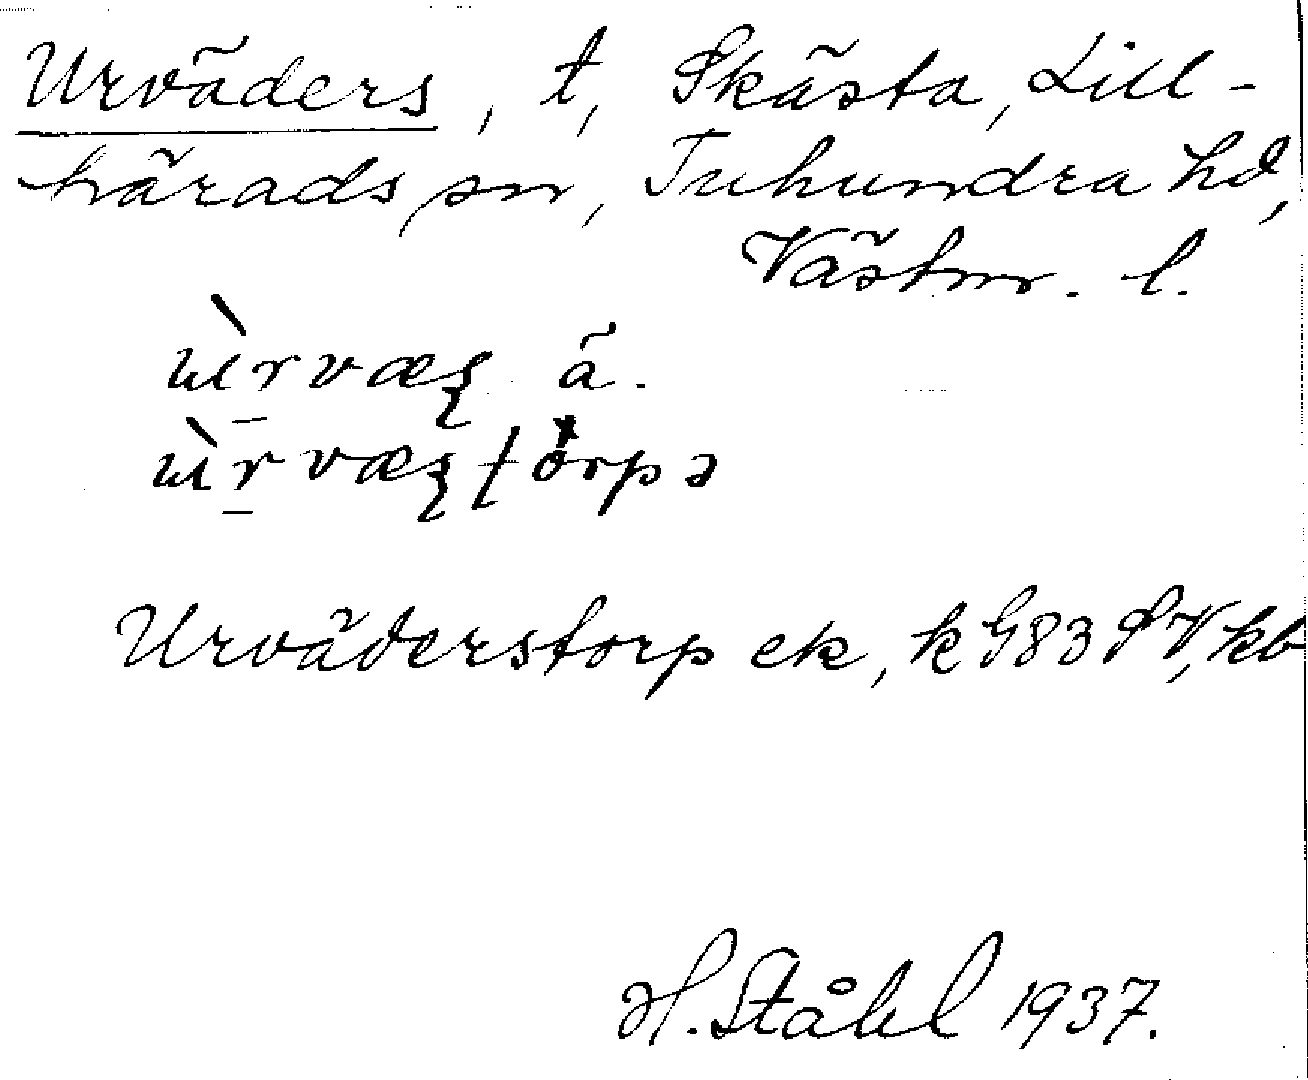 Urväders, t, Skästa, Lill-
härads sn, Tuhundra hd,
Västm. l.
ùrvæʂ ä.
ùrvæʂtorpə
Urväderstorp ek, k G83 SV, kb
H. Ståhl 1937.